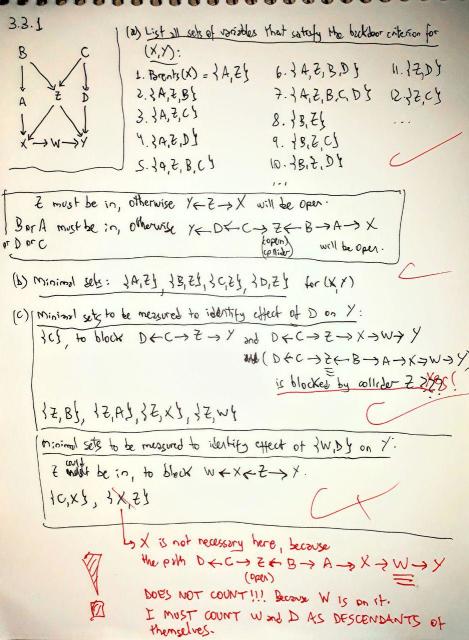 3.3.1
(a) List all sets of variables that satisfy the backdoor criterion for
(X,Y):
B C
A Z D
X → W → Y
1. Parents(X) = {A,Z}
2. {A,Z,B}
3. {A,Z,C}
4. {A,Z,D}
5. {A,Z,B,C}
6. {A,Z,B,D}
7. {A,Z,B,C,D}
8. {B,Z}
9. {B,Z,C}
10. {B,Z,D}
...
11. {Z,D}
12. {Z,C}
...
Z must be in, otherwise Y ← Z → X will be open.
B or A must be in, otherwise Y ← D ← C → Z ← B → A → X
or D or C (open) collider will be open.
(b) Minimal sets: {A,Z}, {B,Z}, {C,Z}, {D,Z} for (X,Y)
(c) Minimal sets to be measured to identify effect of D on Y:
{C}, to block D ← C → Z → Y and D ← C → Z → X → W → Y
and (D ← C → Z ← B → A → X → W → Y
is blocked by collider Z YES!
{Z,B}, {Z,A}, {Z,X}, {Z,W}
Minimal sets to be measured to identify effect of {W,D} on Y:
Z could be in, to block W ← X ← Z → Y.
{C,X}, {X,Z}
↳ X is not necessary here, because
the path D ← C → Z ← B → A → X → W → Y
(open)
DOES NOT COUNT!!! Because W is on it.
I MUST COUNT W and D AS DESCENDANTS of
themselves.